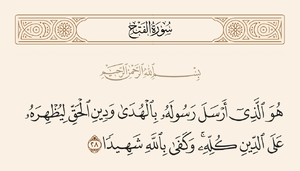 سُورَةُ الْفَتْحِ
بِسْمِ اللَّهِ الرَّحْمَٰنِ الرَّحِيمِ
هُوَ الَّذِي أَرْسَلَ رَسُولَهُ بِالْهُدَىٰ وَدِينِ الْحَقِّ لِيُظْهِرَهُ
عَلَى الدِّينِ كُلِّهِ ۚ وَكَفَىٰ بِاللَّهِ شَهِيدًا ٢٨